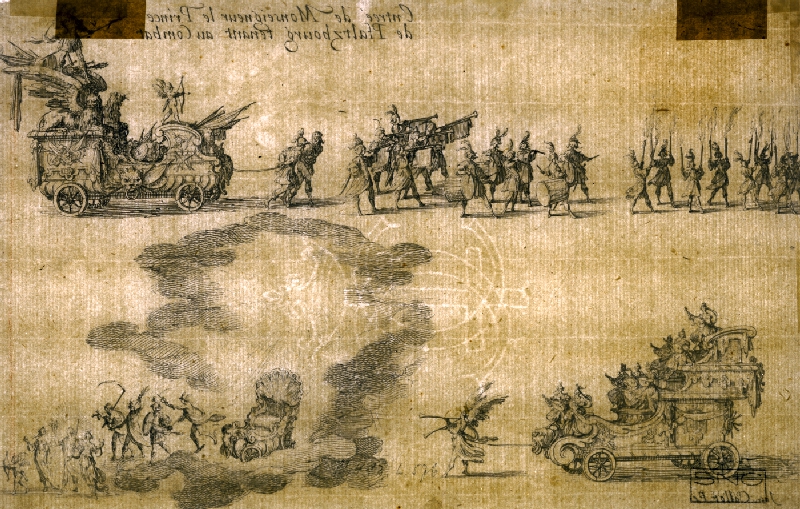 Entree de Monseigneur le Prince
de Pfaltzbourg tenant au Comba
Callot